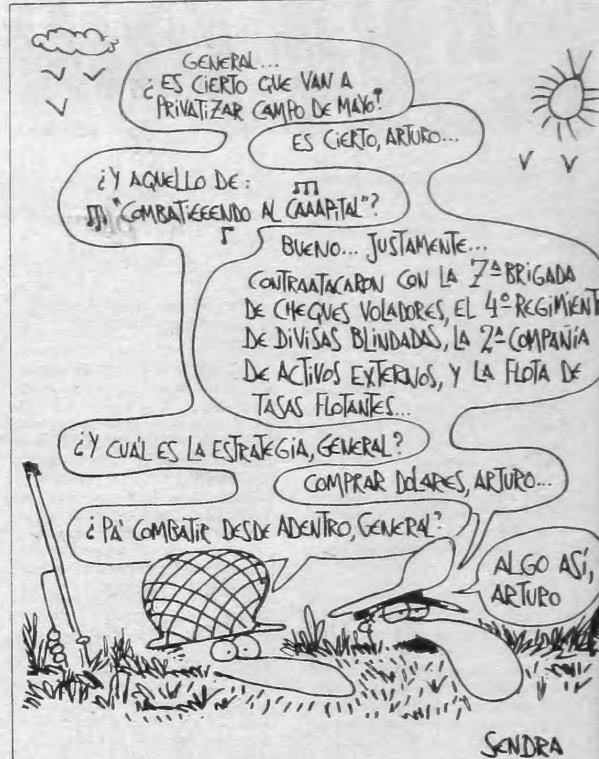 GENERAL...
¿ES CIERTO QUE VAN A
PRIVATIZAR CAMPO DE MAYO?
ES CIERTO, ARTURO...
¿Y AQUELLO DE:
"COMBATIEEENDO AL CAAAPITAL"?
BUENO... JUSTAMENTE...
CONTRAATACARON CON LA 7ª BRIGADA
DE CHEQUES VOLADORES, EL 4º REGIMIENT
DE DIVISAS BLINDADAS, LA 2ª COMPAÑÍA
DE ACTIVOS EXTERNOS, Y LA FLOTA DE
TASAS FLOTANTES...
¿Y CUÁL ES LA ESTRATEGIA, GENERAL?
COMPRAR DÓLARES, ARTURO...
¿PA' COMBATIR DESDE ADENTRO, GENERAL?
ALGO ASÍ,
ARTURO
SENDRA